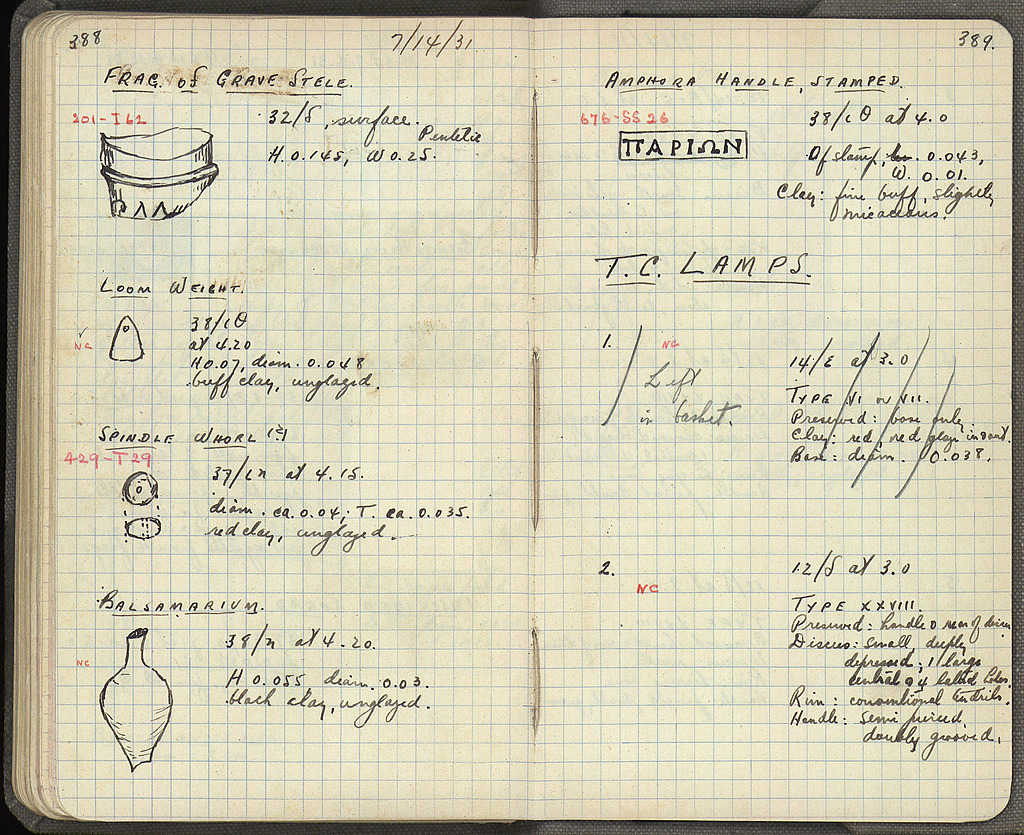 388
7/14/31
FRAG. OF GRAVE STELE.
201-I62
32/δ, surface.
Pentelic
H. 0.145, W 0.25.
LOOM WEIGHT.
38/ιθ
at 4.20
NC
H 0.07, diam. 0.048
buff clay, unglazed.
SPINDLE WHORL (?)
429-T29
37/ιη at 4.15.
diam. ca. 0.04; T. ca. 0.035.
red clay, unglazed.
BALSAMARIUM.
38/η at 4.20.
NC
H 0.055 diam. 0.03.
black clay, unglazed.
389.
AMPHORA HANDLE, STAMPED.
676-SS26
38/ιθ at 4.0
ΠΑΡΙΩΝ
Of stamp, 0.043,
W. 0.01.
Clay: fine buff, slightly
micaceous.
T.C. LAMPS.
1.
NC
Left
in basket.
14/ε at 3.0
TYPE VI or VII.
Preserved: base only.
Clay: red, red glaze in & out.
Base: diam. 0.038.
2.
NC
12/δ at 3.0
TYPE XXVIII.
Preserved: handle & rear of discus
Discus: small, deeply
depressed; 1 large
central & 4 holes.
Rim: conventional tendrils.
Handle: semi pierced,
doubly grooved.